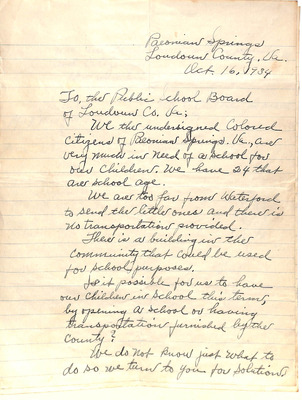 Paeonian Springs
Loudoun County, Va.
Oct 16, 1934
To, the Public School Board
of Loudoun Co. Va;
We the undersigned Colored
Citizens of Paeonian Springs, Va., are
very much in need of a School for
our Children. We have 24 that
are School age.
We are too far from Waterford
to send the little ones and there is
no transportation provided.
There is a building in the
community that could be used
for School purposes.
Is it possible for us to have
our Children in School this term
by opening a School or having
transportation furnished by the
County?
We do not know just what to
do so we turn to you for Solution